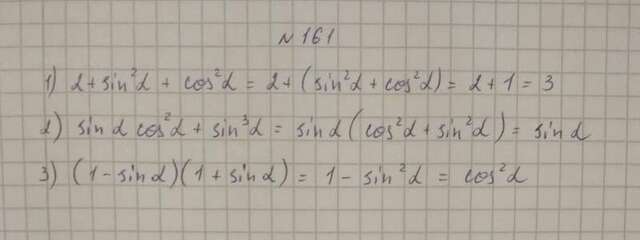 № 161
1) 2 + sin²α + cos²α = 2 + (sin²α + cos²α) = 2 + 1 = 3
2) sin α cos²α + sin³α = sin α (cos²α + sin²α) = sin α
3) (1 - sin α)(1 + sin α) = 1 - sin²α = cos²α